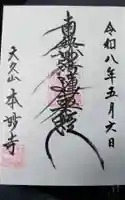 令和八年五月六日
南無妙法蓮華経
天久山
本妙寺